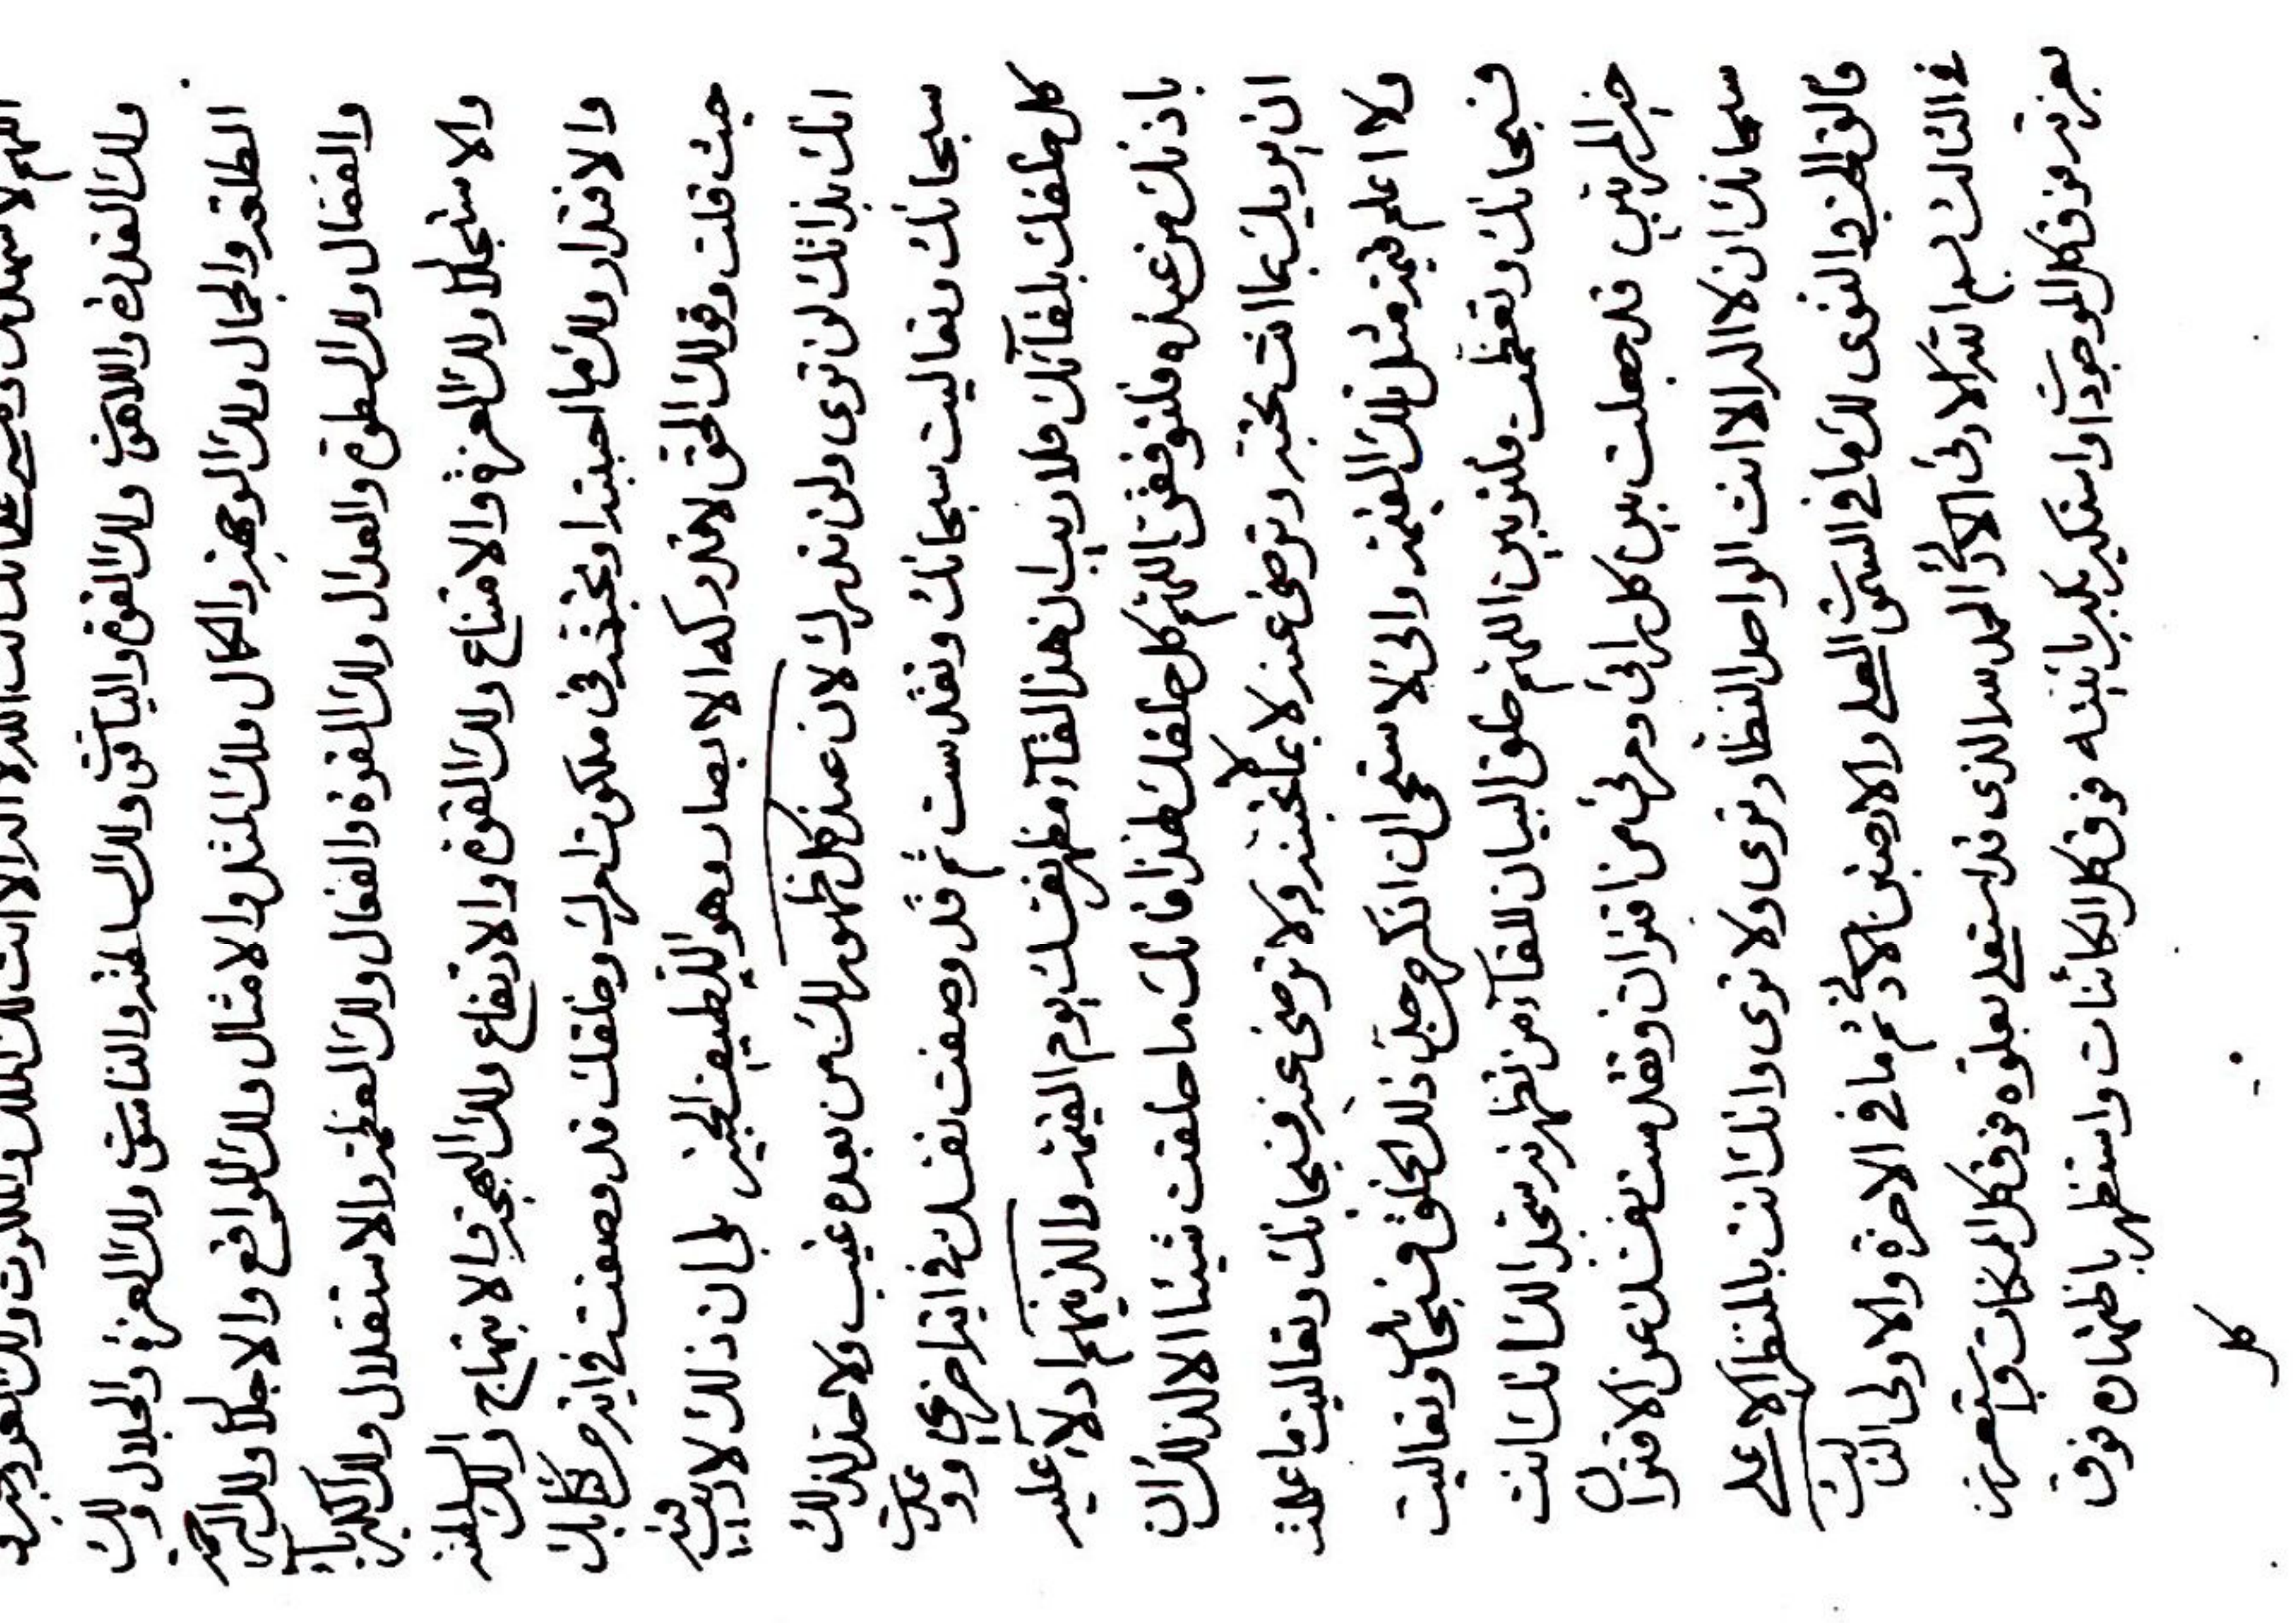 اللهم لاشهدنك انك انت الله لا اله الا انت لك الملك والملكوت ولك العز
ولك القدرة واللاهوت ولك القوة والياقوت ولك السلطنة والناسوت ولك العزة والجلال ولك
الطلعة والجمال ولك الوجهة والكمال ولك المثل والامثال ولك المواقع والاجلال ولك الرحمة
والفضال ولك السطوة والعدال ولك القوة والفعال ولك العظمة والاستقلال ولك الكبرياء
والاستجلال ولك العزة والامتناع ولك القوة والارتفاع ولك البهجة والابتهاج ولك السلطنة
والاقتدار ولك ما احببته او تحبنه في ملكوت امرك وخلقك قد وصفت في اية من كتابك
حيث قلت وقولك الحق لا تدركه الابصار وهو اللطيف الخبير بلى ان ذلك لا ريب فيه
انك بذاتك لن ترى ولن تدرك لان عند كل ظهور لك من بعده غيب ولا حد لذلك
سبحانك وتعاليت سبحانك وتقدست ثم قد وصفت نفسك في اية اخرى ووعدت
كل خلقك بلقائك فلا ريب ان هذا لقاء مظهر نفسك يوم القيمة والذينهم ادلاء عليه
باذنك من عنده فلتوفقن اللهم كل خلقك لهذا فانك ما خلقت شيئا الا لذلك ان
ان يريك بما انت تحبه وترضى عنه لا بما لا تحبنه ولا ترضى عنه فسبحانك وتعاليت ما علمت
ولا اعلم قيمة مثل تلك القيمة وانى لاستحيي ان اذكر ذلك الخلق فسبحانك وتعاليت
فسبحانك وتعظمت فلتربين اللهم خلق البيان للقاء من تظهرنه سجدا لك انك انت
خير المربين قد جعلت بين كل رائى ومرئى من اقتران وتقدست نفسك عن الاقتران
سبحانك ان لا اله الا انت الواحد النظار ترى ولا ترى وانك انت بالمنظر الاعلى
فالق الحب والنوى لك ما في السموات العلى والارضين الادنى ثم ما في الاخرة والاولى الثالث
في الثالث بسم الله الادنى الادنى الحمد لله الذي قد استعلى بعلوه فوق كل الممكنات واستعزز
بعزته فوق كل الموجودات واستكبر بكبريائيته فوق كل الكائنات واستظهر باظهاره فوق
كل